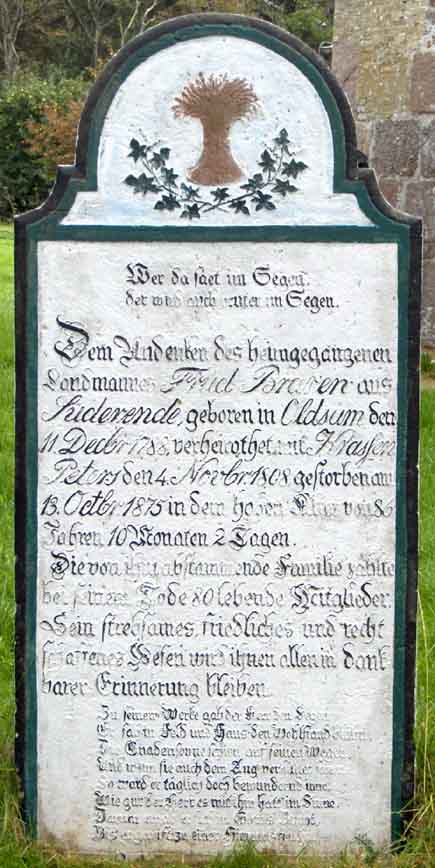 Wer da säet im Segen,
der wird auch ernten im Segen.
Dem Andenken des heimgegangenen
Landmannes Früd Braren aus
Süderende, geboren in Oldsum den
11. Decbr 1788, verheirathet mit Krassen
Peters den 4. Novbr 1808 gestorben am
13. Octbr 1875 in dem hohen Alter von 86
Jahren 10 Monaten 2 Tagen.
Die von ihm abstammende Familie zählte
bei seinem Tode 80 lebende Mitglieder
Sein strebsames, friedliches und recht
schaffenes Wesen wird ihnen allen in dank
barer Erinnerung bleiben.
Zu seinem Werke gab der Herr den Segen
Er sah in Feld und Haus den Wohlstand
Die Gnadensonne schien auf seinen Wegen
Und wenn sie auch dem Aug
So ward er täglich doch
Wie gut der Herr es mit ihm hatt' im Sinne